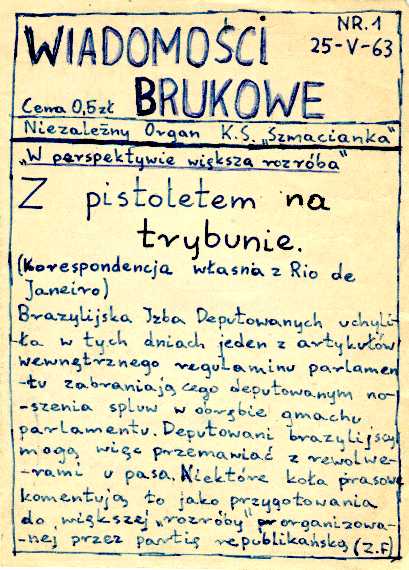 WIADOMOŚCI
NR. 1
25-V-63
Cena 0,5zł BRUKOWE
Niezależny Organ K.S. „Szmacianka"
„W perspektywie większa rozróba"
Z pistoletem na
trybunie.
(Korespondencja własna z Rio de
Janeiro)
Brazylijska Izba Deputowanych uchyli-
-ła w tych dniach jeden z artykułów
wewnętrznego regulaminu parlamen
-tu zabraniającego deputowanym no-
-szenia spluw w obrębie gmachu
parlamentu. Deputowani brazylijscy
mogą więc przemawiać z rewolwe-
-rami u pasa. Niektóre koła prasowe
komentują to jako przygotowania
do większej „rozróby" zorganizowa-
-nej przez partię republikańską (Z.F)